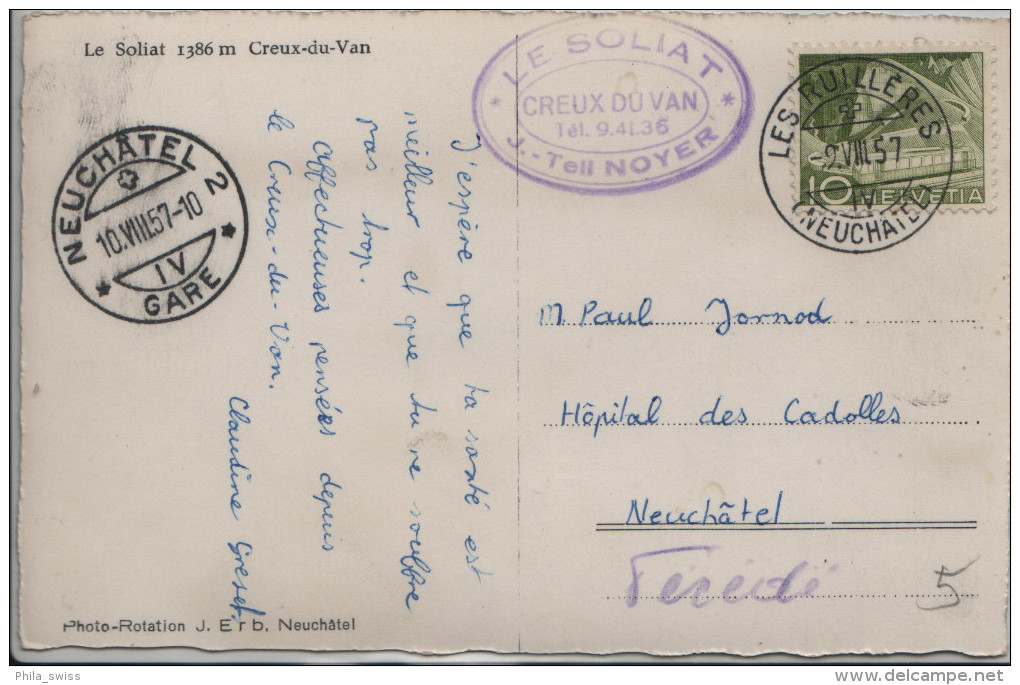 Le Soliat 1386 m Creux-du-Van
LE SOLIAT
CREUX DU VAN
Tél. 9.41.36
J.-Tell NOYER
LES RUILLÈRES
9.VIII.57
IV
(NEUCHÂTEL)
10 HELVETIA
NEUCHÂTEL 2
10.VIII.57-10
IV
GARE
J'espère que ta santé est
meilleur et que tu ne souffre
pas trop.
Affectueuses pensées depuis
le Creux-du-Van.
Claudine Greset.
M. Paul Jornod
Hôpital des Cadolles
Neuchâtel
Décédé
5
Photo-Rotation J. Erb, Neuchâtel
Phila_swiss
delcampe.net